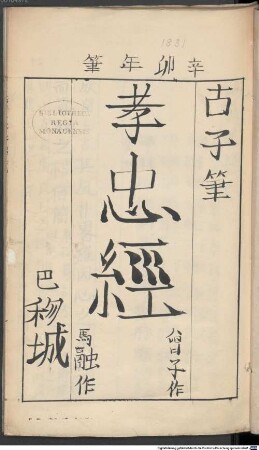 1831
辛卯年筆
古子筆
孝忠經
曾子作
馬融作
巴秾城
BIBLIOTHECA
REGIA
MONACENSIS